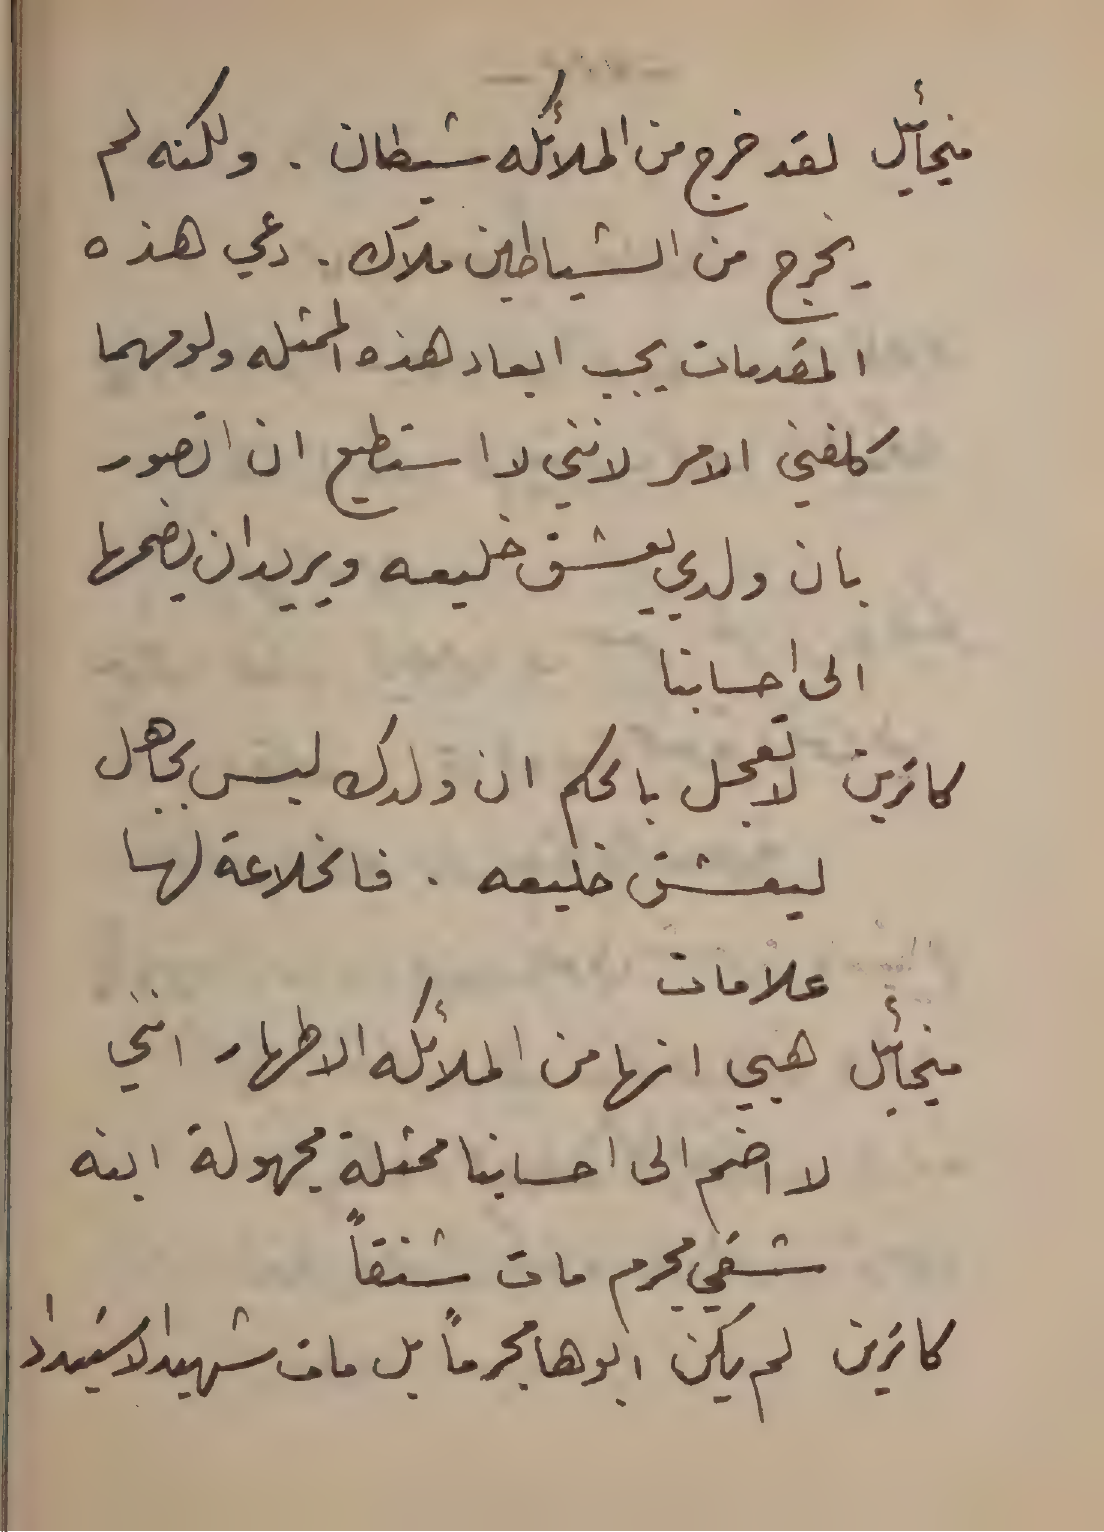 ميخائيل لقد خرج من الملائكه شيطان . ولكنه لم
يخرج من الشياطين ملاك . دعي هذه
المقدمات يجب ابعاد هذه الممثله ولو مهما
كلفني الامر لانني لا استطيع ان اتصور
بان ولدي يعشق خليعه ويريد ان يضمها
الى احسابنا
كاترين لا تعجل بالحكم ان ولدك ليس بجاهل
ليعشق خليعه . فالخلاعة لها
علامات
ميخائيل هبي انها من الملائكه الاطهار انني
لا اضم الى احسابنا ممثلة مجهولة ابنه
شقي مجرم مات شنقاً
كاترين لم يكن ابوها مجرماً بل مات شهيد الاستبداد